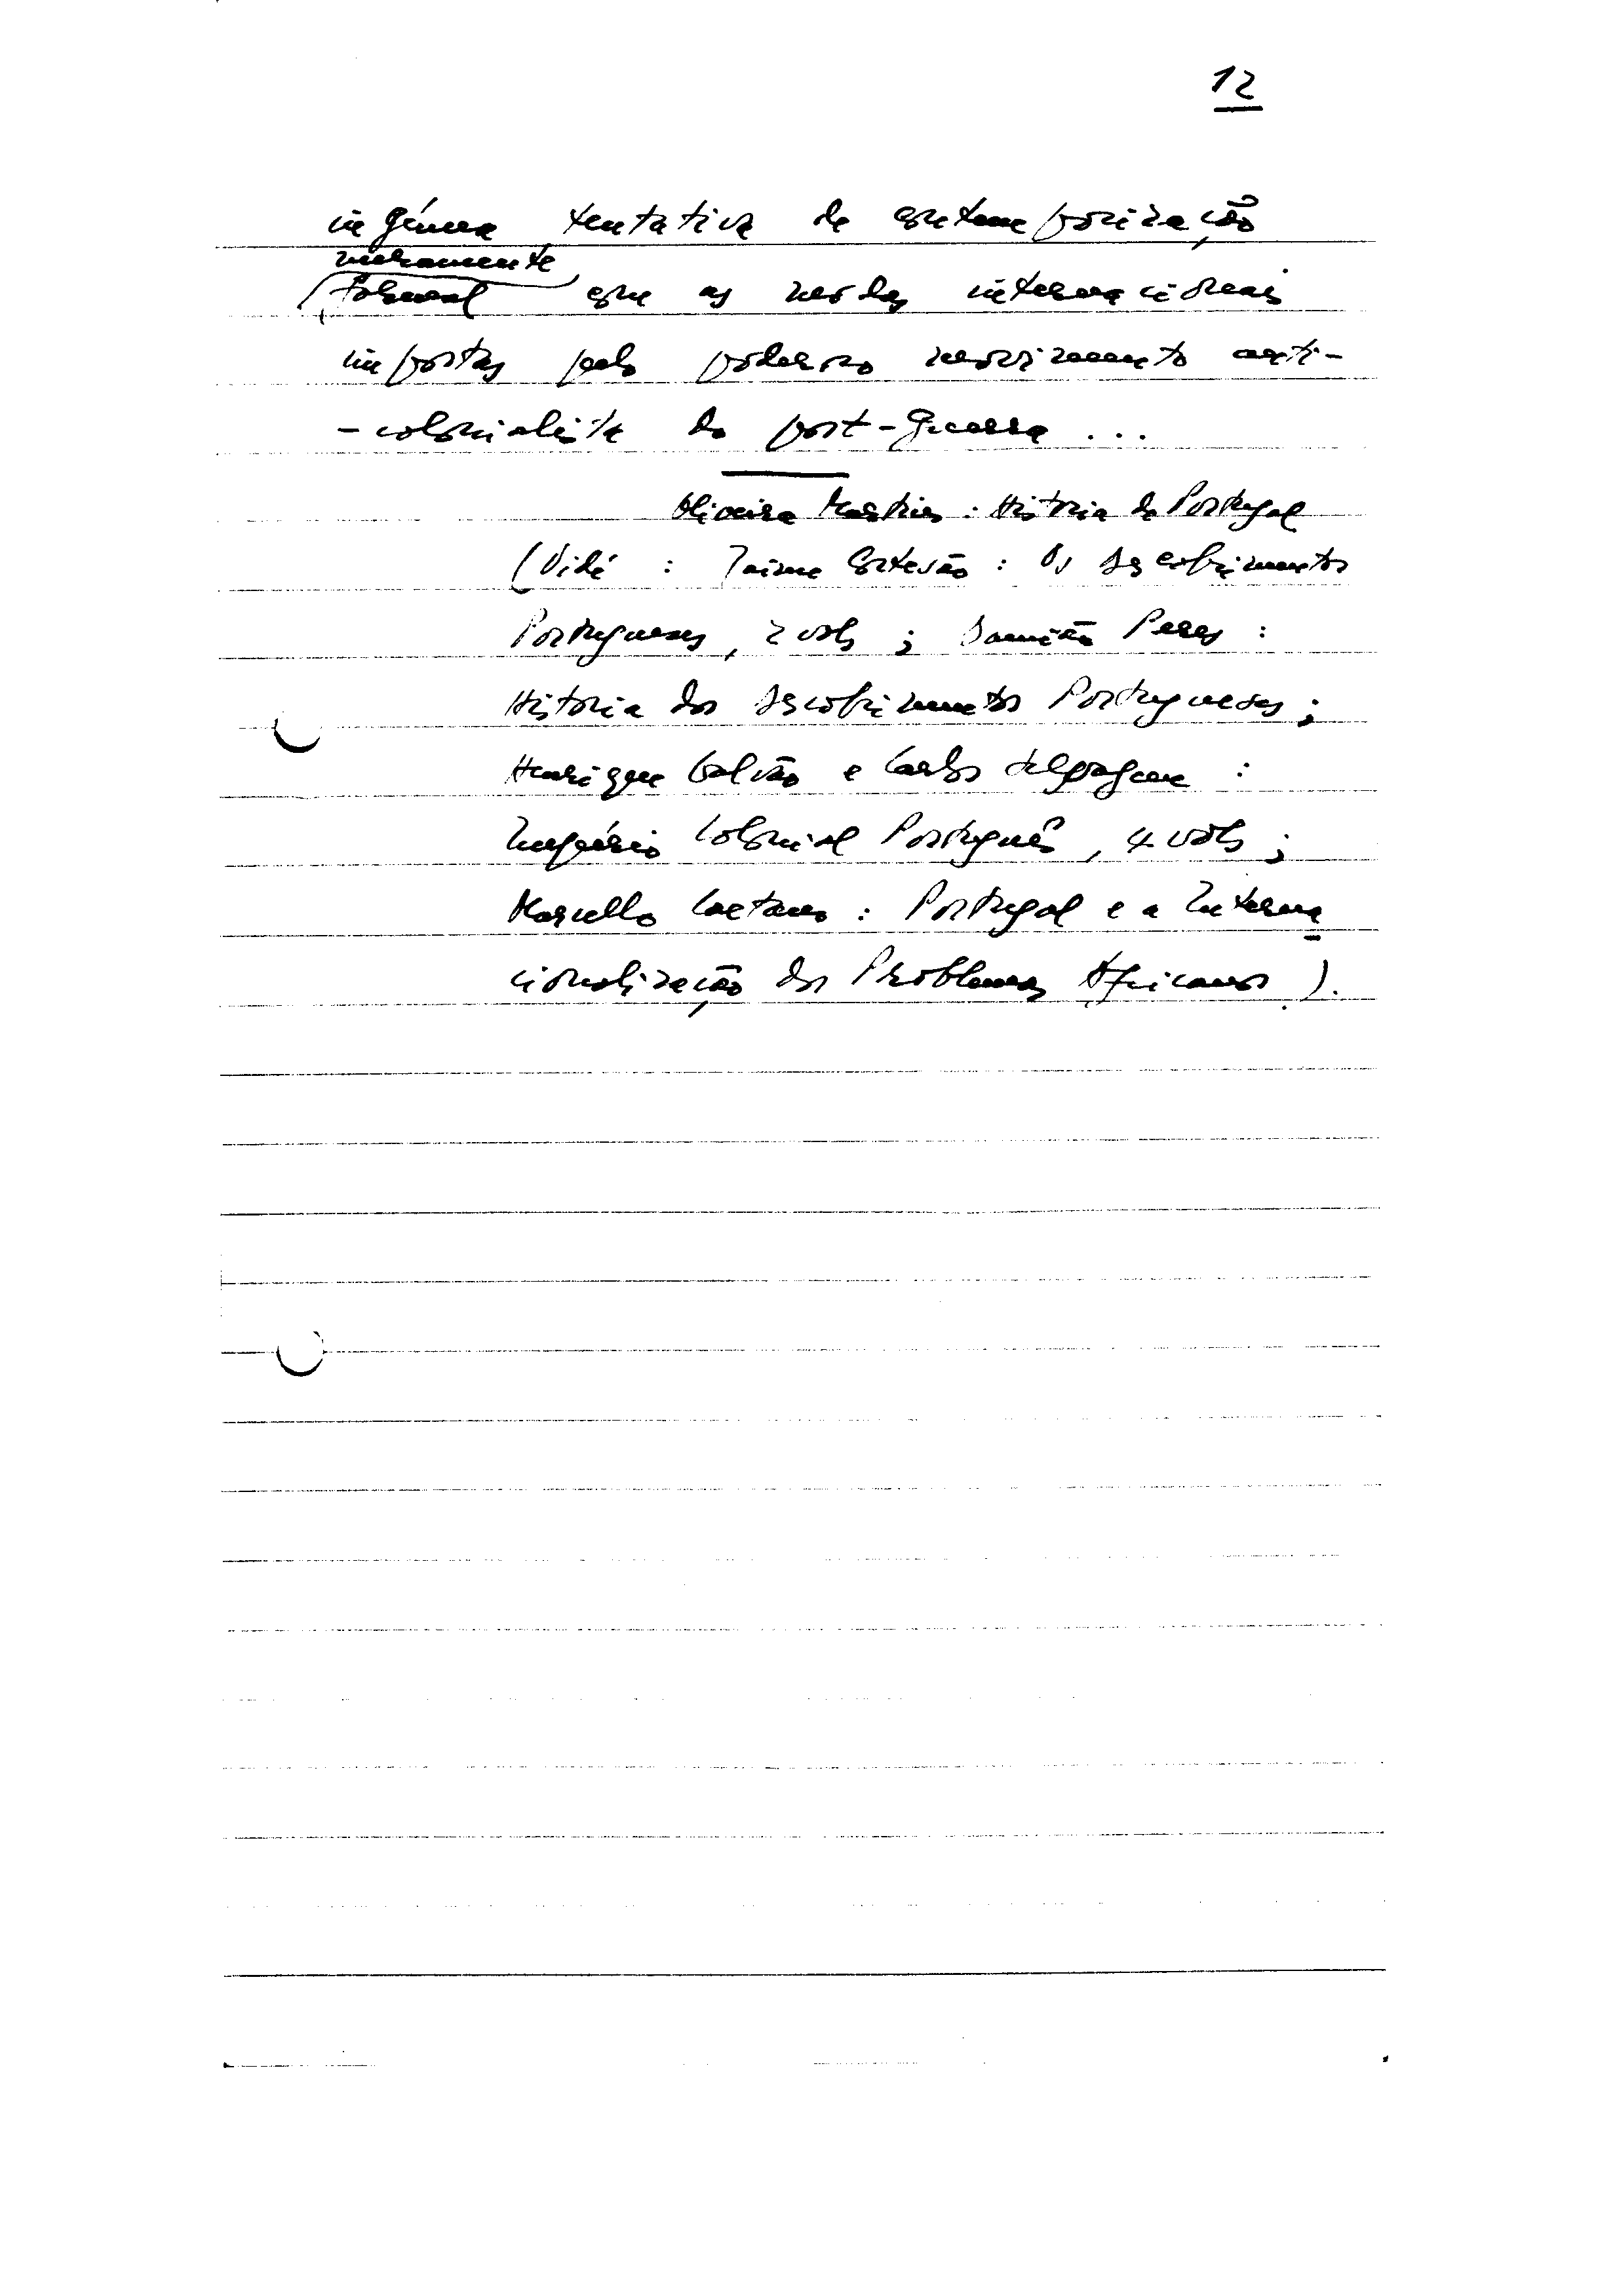 12
ingénua tentativa de contemporização
meramente
formal com as modas internacionais
impostas pelo poderoso movimento anti-
-colonialista do post-guerra ...
Oliveira Martins : História de Portugal
(Vidé : Jaime Cortesão : Os Descobrimentos
Portugueses, 2 vols ; Damião Peres :
História dos Descobrimentos Portugueses ;
Henrique Galvão e Carlos Selvagem :
Império Colonial Português, 4 vols ;
Marcello Caetano : Portugal e a Interna
cionalização dos Problemas Africanos ).